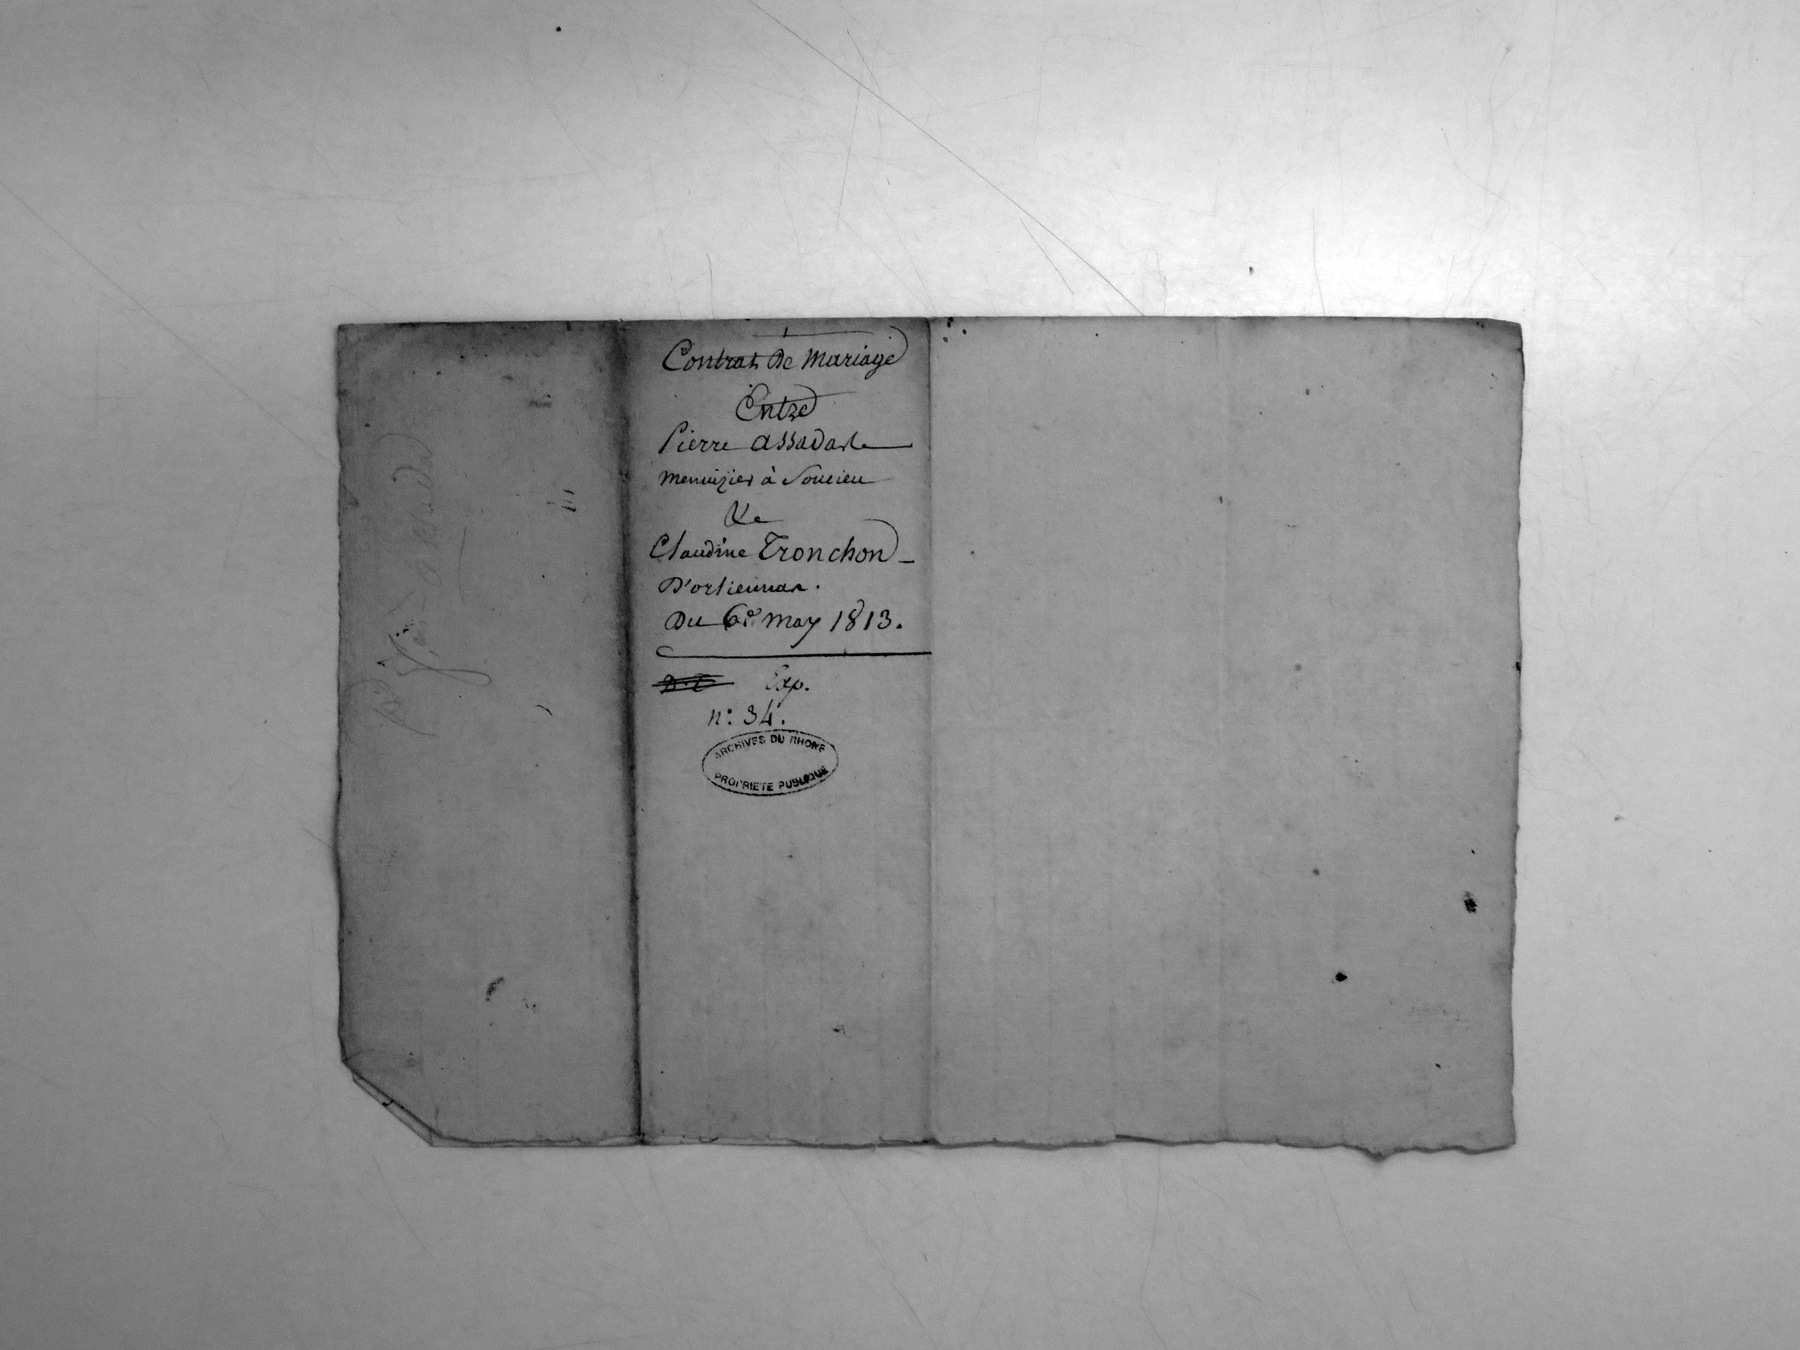 Contrat De Mariage
Entre
Pierre assada
menuizier à Soucieu
Et
Claudine Tronchon
D'orlienas.
Du 6e. may 1813.
Exp.
n°: 34.
ARCHIVES DU RHONE
PROPRIETE PUBLIQUE